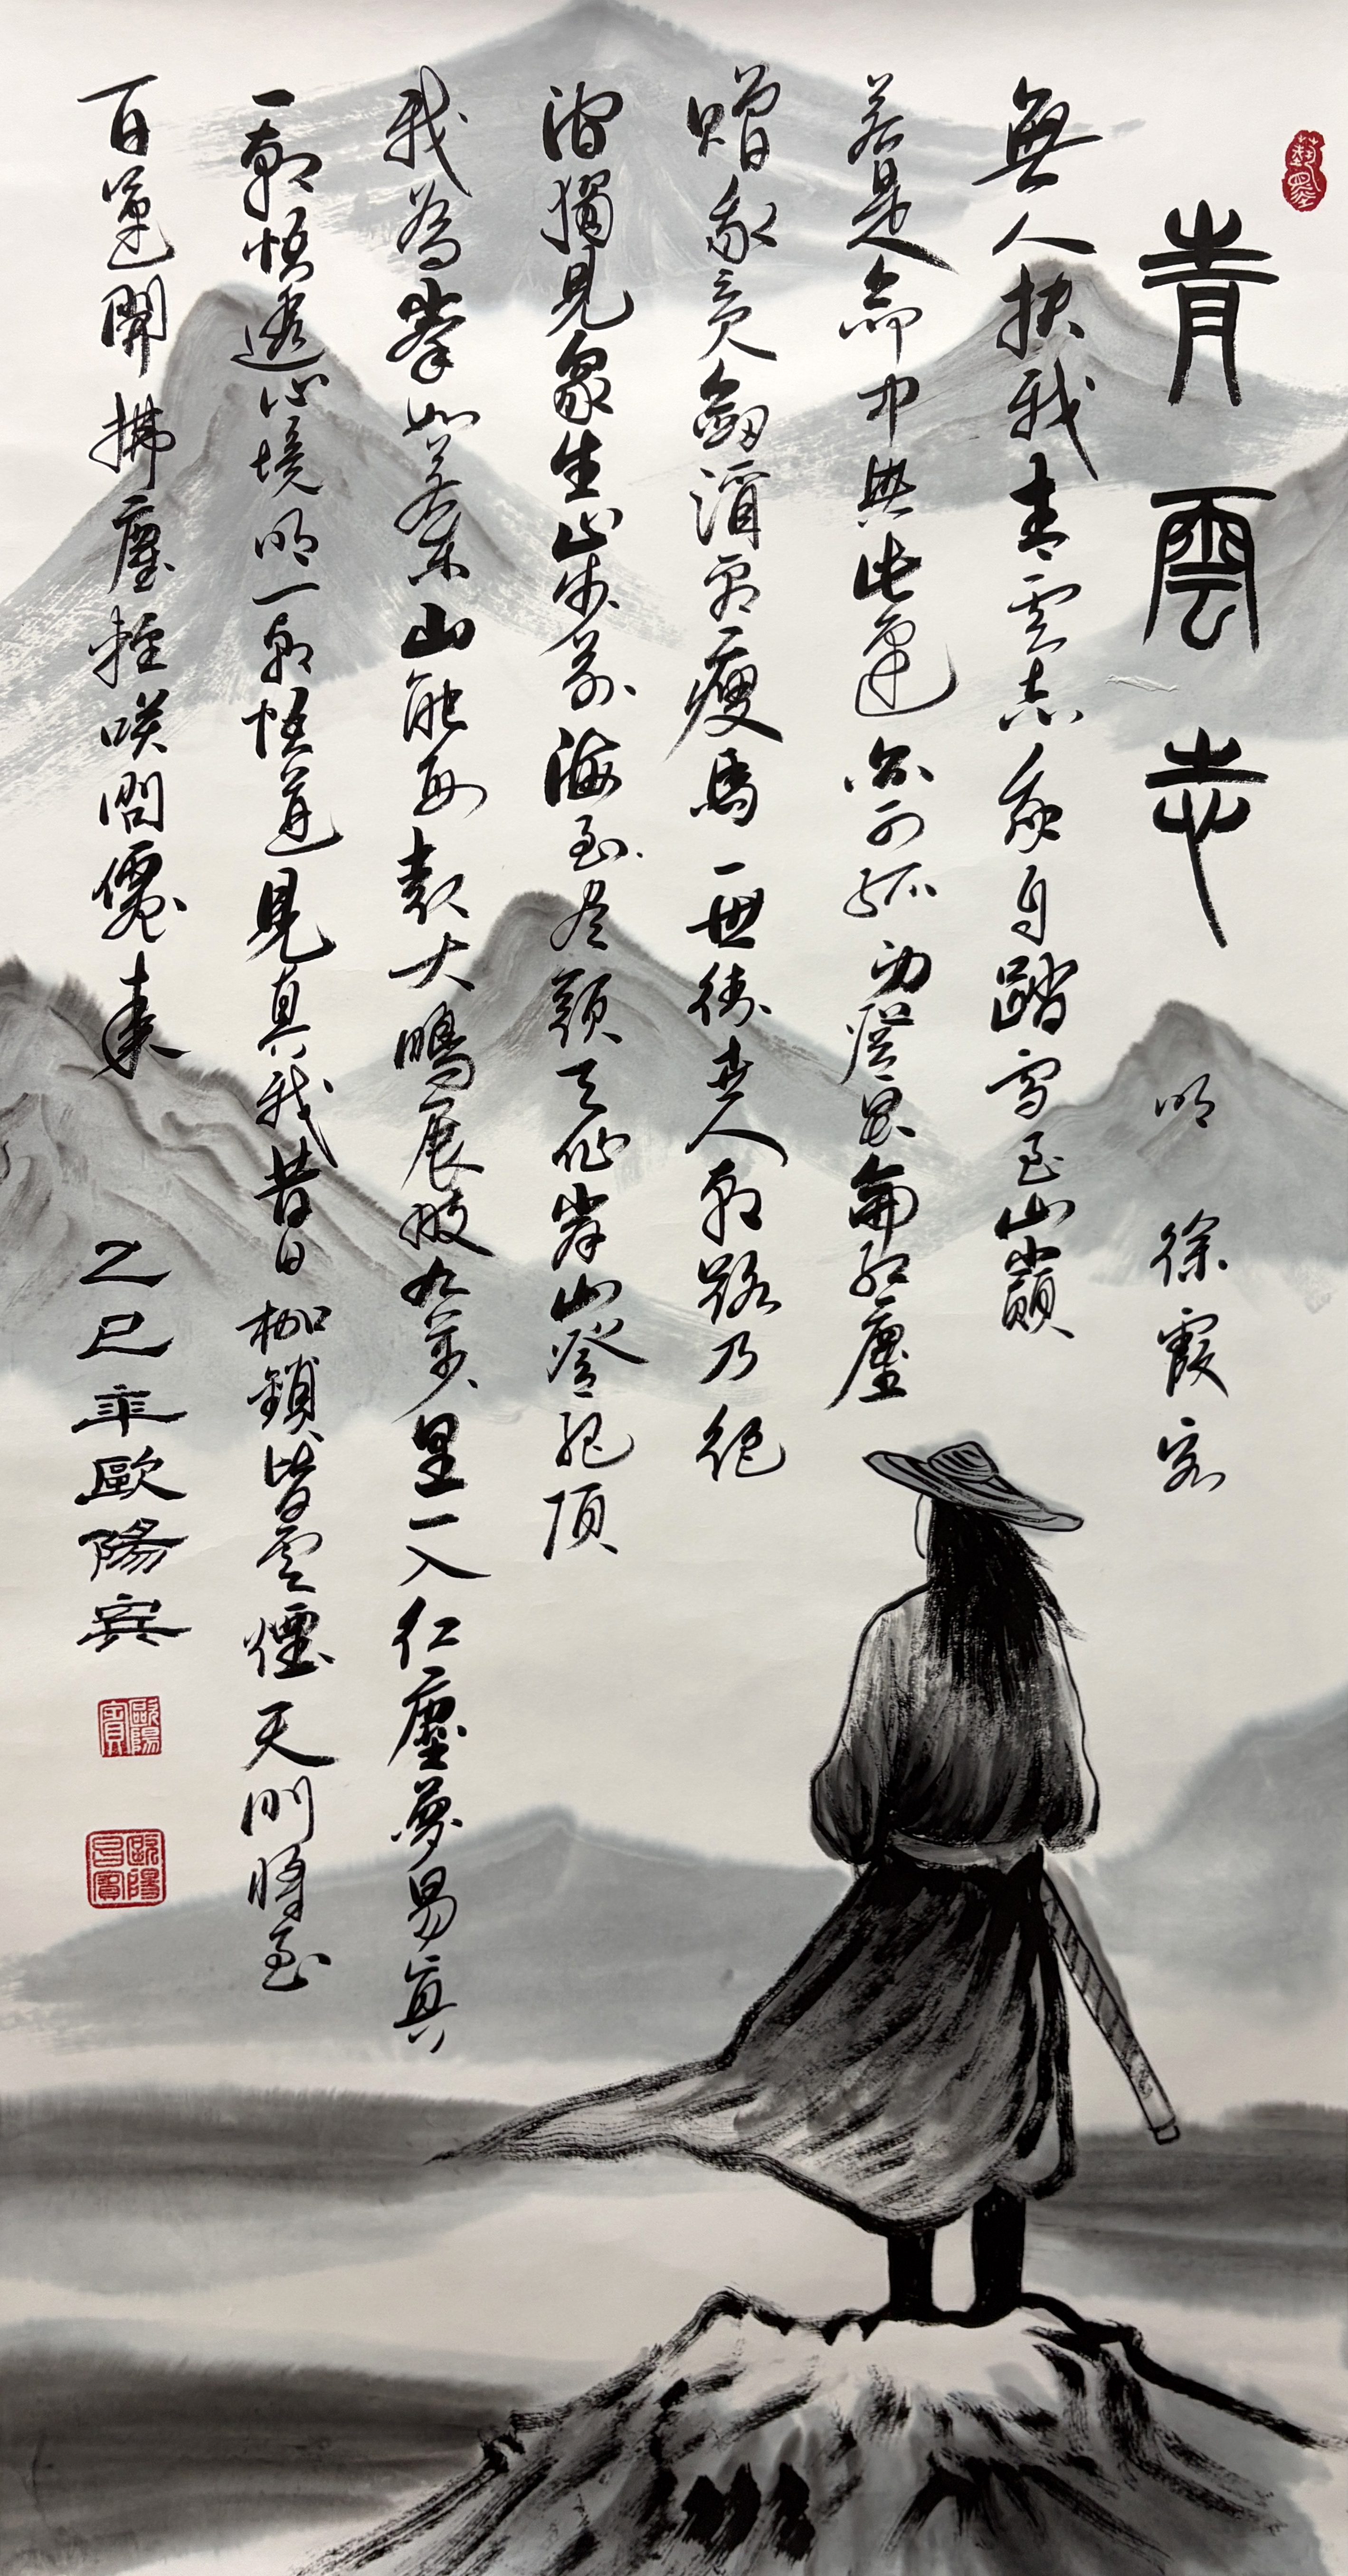 青雲志
明 徐霞客
無人扶我青雲志我自踏雪至山巔
若是命中無此運亦可孤身登昆侖紅塵
贈我 劍 瘦馬一世 人 路乃絕
獨見衆生山步前海至盡頭天作岸山登絕頂
我為峯如若東山能再起大鵬展翅九萬里一入紅塵夢易真
一朝悟透心境明一朝悟道見真我昔日枷鎖皆雲煙天門將至
百運開拂塵輕咲問僊來
乙巳年歐陽賓
歐陽賓